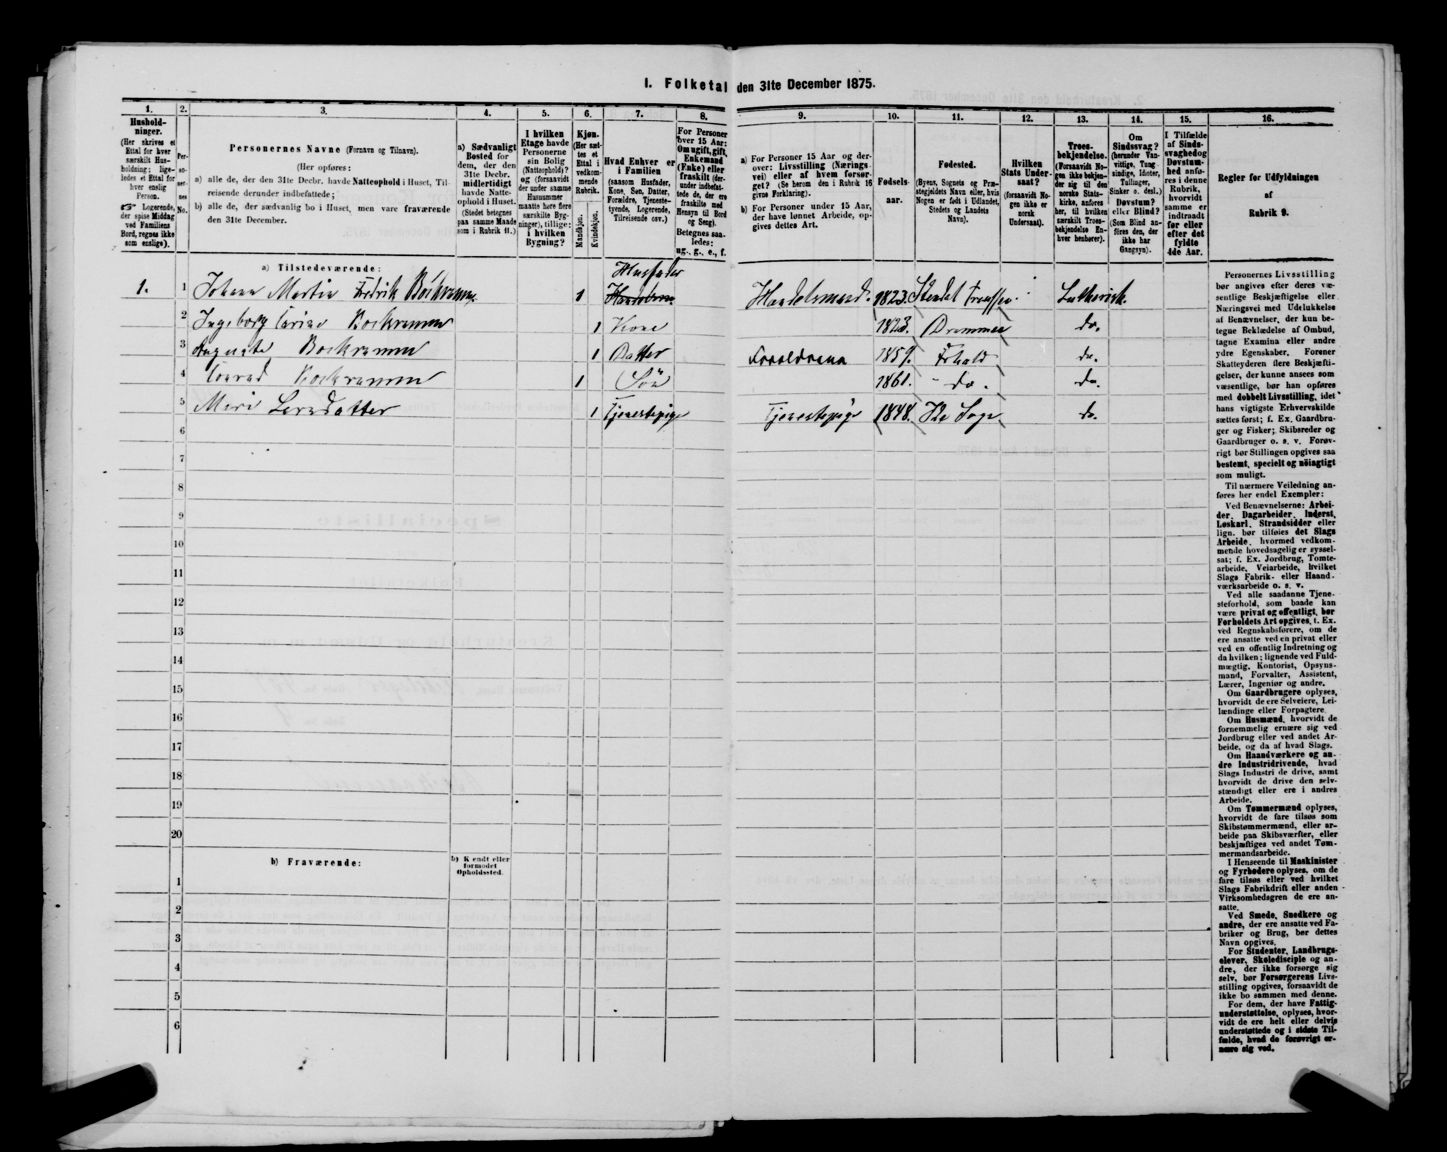 I. Folketal den 31te December 1875.
1.
2.
3.
4.
5.
6.
7.
8.
9.
10.
11.
12.
13.
14.
15.
16.
Hushold-
ninger.
(Her skrives et
Ettal for hver
særskilt Hus-
holdning; lige-
ledes et Ettal for
hver enslig
Person.
Logerende,
der spise Middag
ved Familiens
Bord, regnes ikke
som enslige).
Per-
so-
ner-
nes
No.
Personernes Navne (Fornavn og Tilnavn).
(Her opføres:
a) alle de, der den 31te Decbr. havde Natteophold i Huset, Til-
reisende derunder indbefattede;
b) alle de, der sædvanlig bo i Huset, men vare fraværende
den 31te December.
a) Sædvanligt
Bosted for
dem, der den
31te Decbr.
midlertidigt
havde Natte-
ophold i Huset.
(Stedet betegnes
paa samme Maade
som i Rubrik 11.)
I hvilken
Etage havde
Personerne
sin Bolig
(Natteophold)?
og (forsaavidt
der under samme
Husnummer
maatte høre flere
særskilte Byg-
ninger), tillige:
i hvilken
Bygning?
Kjøn.
(Her sæt-
tes et
Ettal i
vedkom-
mende
Rubrik.
Mandkjøn.
Kvindekjøn.
Hvad Enhver er
i Familien
(saasom Husfader,
Kone, Søn, Datter,
Forældre, Tjeneste-
tyende, Logerende,
Tilreisende osv.)
For Personer
over 15 Aar:
Om ugift, gift,
Enkemand
(Enke) eller
fraskilt (der-
under indbefat-
tede de, der ere
fraskilte med
Hensyn til Bord
og Seng).
Betegnes saa-
ledes:
ug., g., e., f.
a) For Personer 15 Aar og der-
over: Livsstilling (Nærings-
vei) eller af hvem forsør-
get? (Se herom den i Rubrik 16
givne Forklaring).
b) For Personer under 15 Aar,
der have lønnet Arbeide, op-
gives dettes Art.
Fødsels-
aar.
Fødested.
(Byens, Sognets og Præ-
stegjeldets Navn eller, hvis
Nogen er født i Udlandet,
Stedets og Landets
Navn).
Hvilken
Stats Under-
saat?
(forsaavidt No-
gen ikke er
norsk
Undersaat).
Troes-
bekjendelse.
(Forsaavidt No-
gen ikke bekjen-
der sig til den
norske Stats-
kirke, anføres
her, til hvilken
særskilt Troes-
bekjendelse En-
hver henhører).
Om
Sindssvag?
(herunder Van-
vittige, Tung-
sindige, Idioter,
Tullinger,
Sinker o. desl.)
Døvstum?
eller Blind?
(Som Blind an-
føres den, der
ikke har
Gangsyn).
I Tilfælde
af Sinds-
svaghed og
Døvstum-
hed anfø-
res i denne
Rubrik,
hvorvidt
samme er
indtraadt
før eller
efter det
fyldte
4de Aar.
Regler for Udfyldningen
af
Rubrik 9.
a) Tilstedeværende:
1. 1 Johann Martin Fredrik Böckmann 1 Husfader Handelsmand. 1823. Luthersk.
2 Ingeborg Carine Bockmann 1 Kone 1823. Drammen do.
3 Auguste Bockmann 1 Datter Forældrene 1859. Eshold do.
4 Conrad Bockmann 1 Søn 1861. do. do.
5 Mari Larsdatter 1 Tjenestepige Tjenestepige 1848. do.
6
7
8
9
10
11
12
13
14
15
16
17
18
19
20
b) Fraværende:
b) Kjendt eller
formodet
Opholdssted.
1
2
3
4
5
6
Personernes Livsstilling
bør angives efter deres væ-
sentlige Beskjæftigelse eller
Næringsvei med Udelukkelse
af Benævnelser, der kun be-
tegne Beklædelse af Ombud,
tagne Examina eller andre
ydre Egenskaber. Forener
Skatteyderen flere Beskjæfti-
gelser, der kunne ansees som
væsentlige, bør han opføres
med dobbelt Livsstilling, idet
hans vigtigste Erhvervskilde
sættes først; f. Ex. Gaardbru-
ger og Fisker; Skibsreder og
Gaardbruger o. s. v. Forøv-
rigt bør Stillingen opgives saa
bestemt, specielt og nøiagtigt
som muligt.
Til nærmere Veiledning an-
føres her endel Exempler:
Ved Benævnelserne: Arbei-
der, Dagarbeider, Inderst,
Løskarl, Strandsidder eller
lign. bør tilføies det Slags
Arbeide, hvormed vedkom-
mende hovedsagelig er syssel-
sat; f. Ex. Jordbrug, Tomte-
arbeide, Veiarbeide, hvilket
Slags Fabrik- eller Haand-
værksarbeide o. s. v.
Ved alle saadanne Tjene-
steforhold, som baade kan
være privat og offentligt, bør
Forholdets Art opgives, f. Ex.
ved Regnskabsførere, om de
ere ansatte ved en privat eller
ved en offentlig Indretning og
da hvilken; lignende ved Fuld-
mægtig, Kontorist, Opsyns-
mand, Forvalter, Assistent,
Lærer, Ingeniør og andre.
Om Gaardbrugere oplyses,
hvorvidt de ere Selveiere, Lei-
lændinge eller Forpagtere.
Om Husmænd, hvorvidt de
fornemmelig ernære sig ved
Jordbrug eller ved andet Ar-
beide, og da af hvad Slags.
Om Haandværkere og an-
dre Industridrivende, hvad
Slags Industri de drive, samt
hvorvidt de drive den selv-
stændigt eller ere i andres
Arbeide.
Om Tømmermænd oplyses,
hvorvidt de fare tilsøs som
Skibstømmermænd, eller ar-
beide paa Skibsværfter, eller
beskjæftiges ved andet Tøm-
mermandsarbeide.
I Henseende til Maskinister
og Fyrbødere oplyses, om de
fare tilsøs eller ved hvilket
Slags Fabrikdrift eller anden
Virksomhedsgren de ere an-
satte.
Ved Smede, Snedkere og
andre, der ere ansatte ved Fa-
briker og Brug, bør dettes
Navn opgives.
For Studenter, Landbrugs-
elever, Skoledisciple og an-
dre, der ikke forsørge sig
selv, bør Forsørgerens Livs-
stilling opgives, forsaavidt de
ikke bo sammen med denne.
For dem, der have Fattig-
understøttelse, oplyses, hvor-
vidt de ere helt eller delvis
understøttede og i sidste Til-
fælde, hvad de forøvrigt er-
nære sig ved.